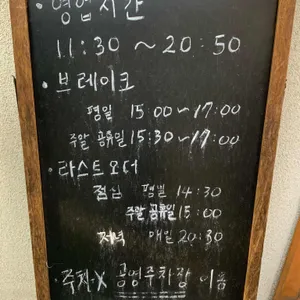 · 영업시간
11:30 ~ 20:50
· 브레이크
평일 15:00~17:00
주말 공휴일 15:30~17:00
· 라스트오더
점심 평일 14:30
주말 공휴일 15:00
저녁 매일 20:30
· 주차·X 공영주차장 이용